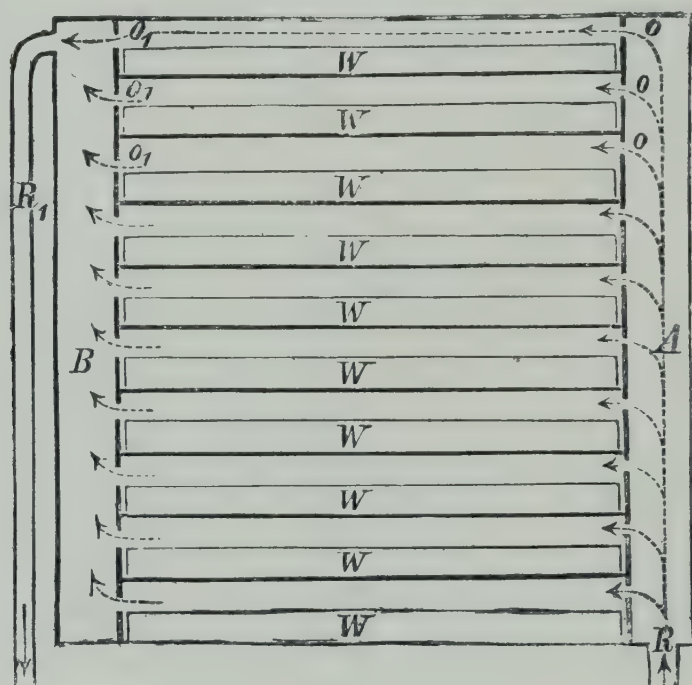 O₁ O
W
O₁ O
W
O₁ O
R₁ W
W
W
B W A
W
W
W
W R